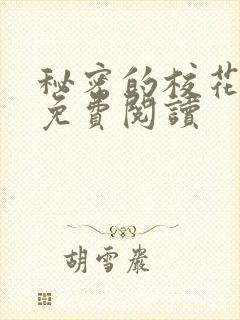 秘密的校花
免費閱讀
胡雪巖